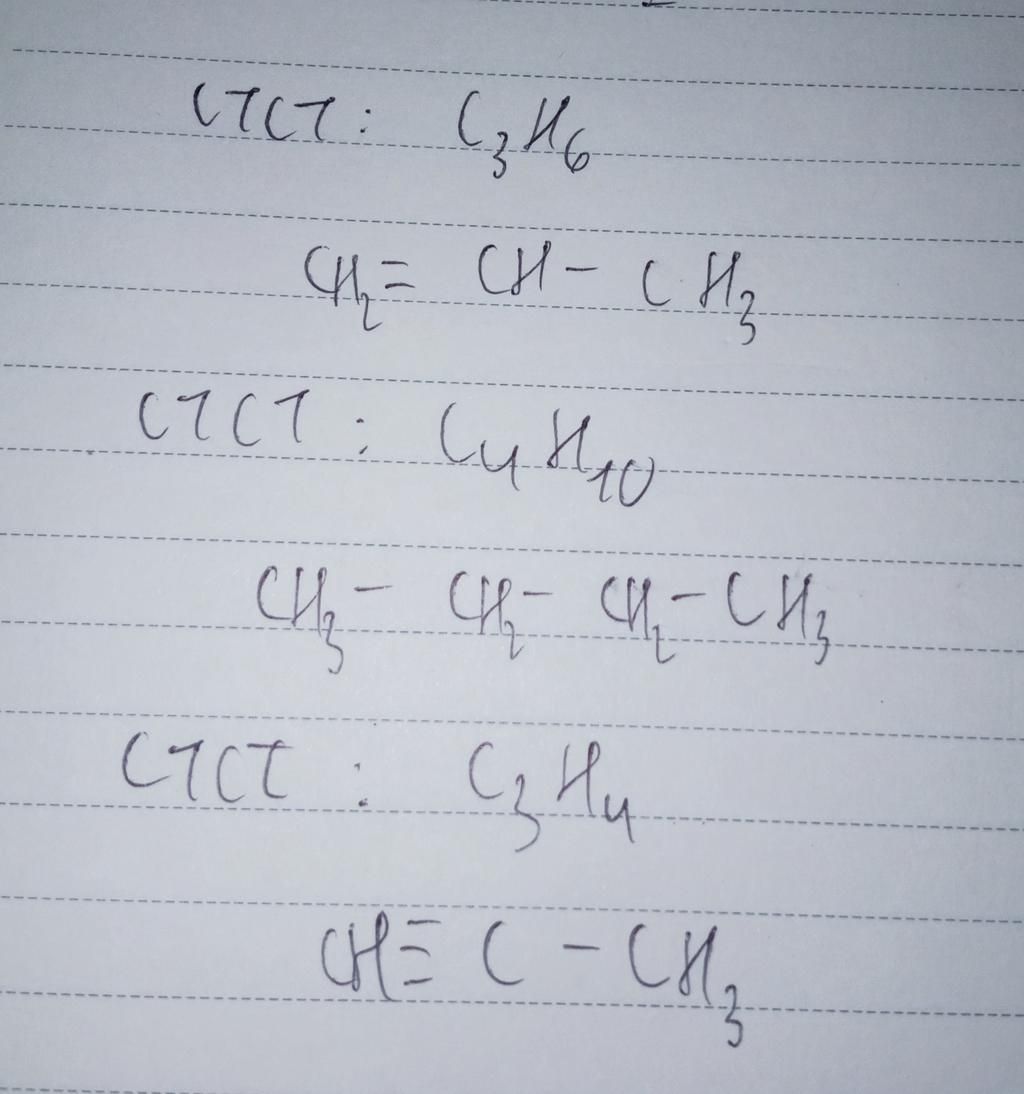 CTCT : C₃H₆
CH₂ = CH - CH₃
CTCT : C₄H₁₀
CH₃ - CH₂ - CH₂ - CH₃
CTCT : C₃H₄
CH ≡ C - CH₃